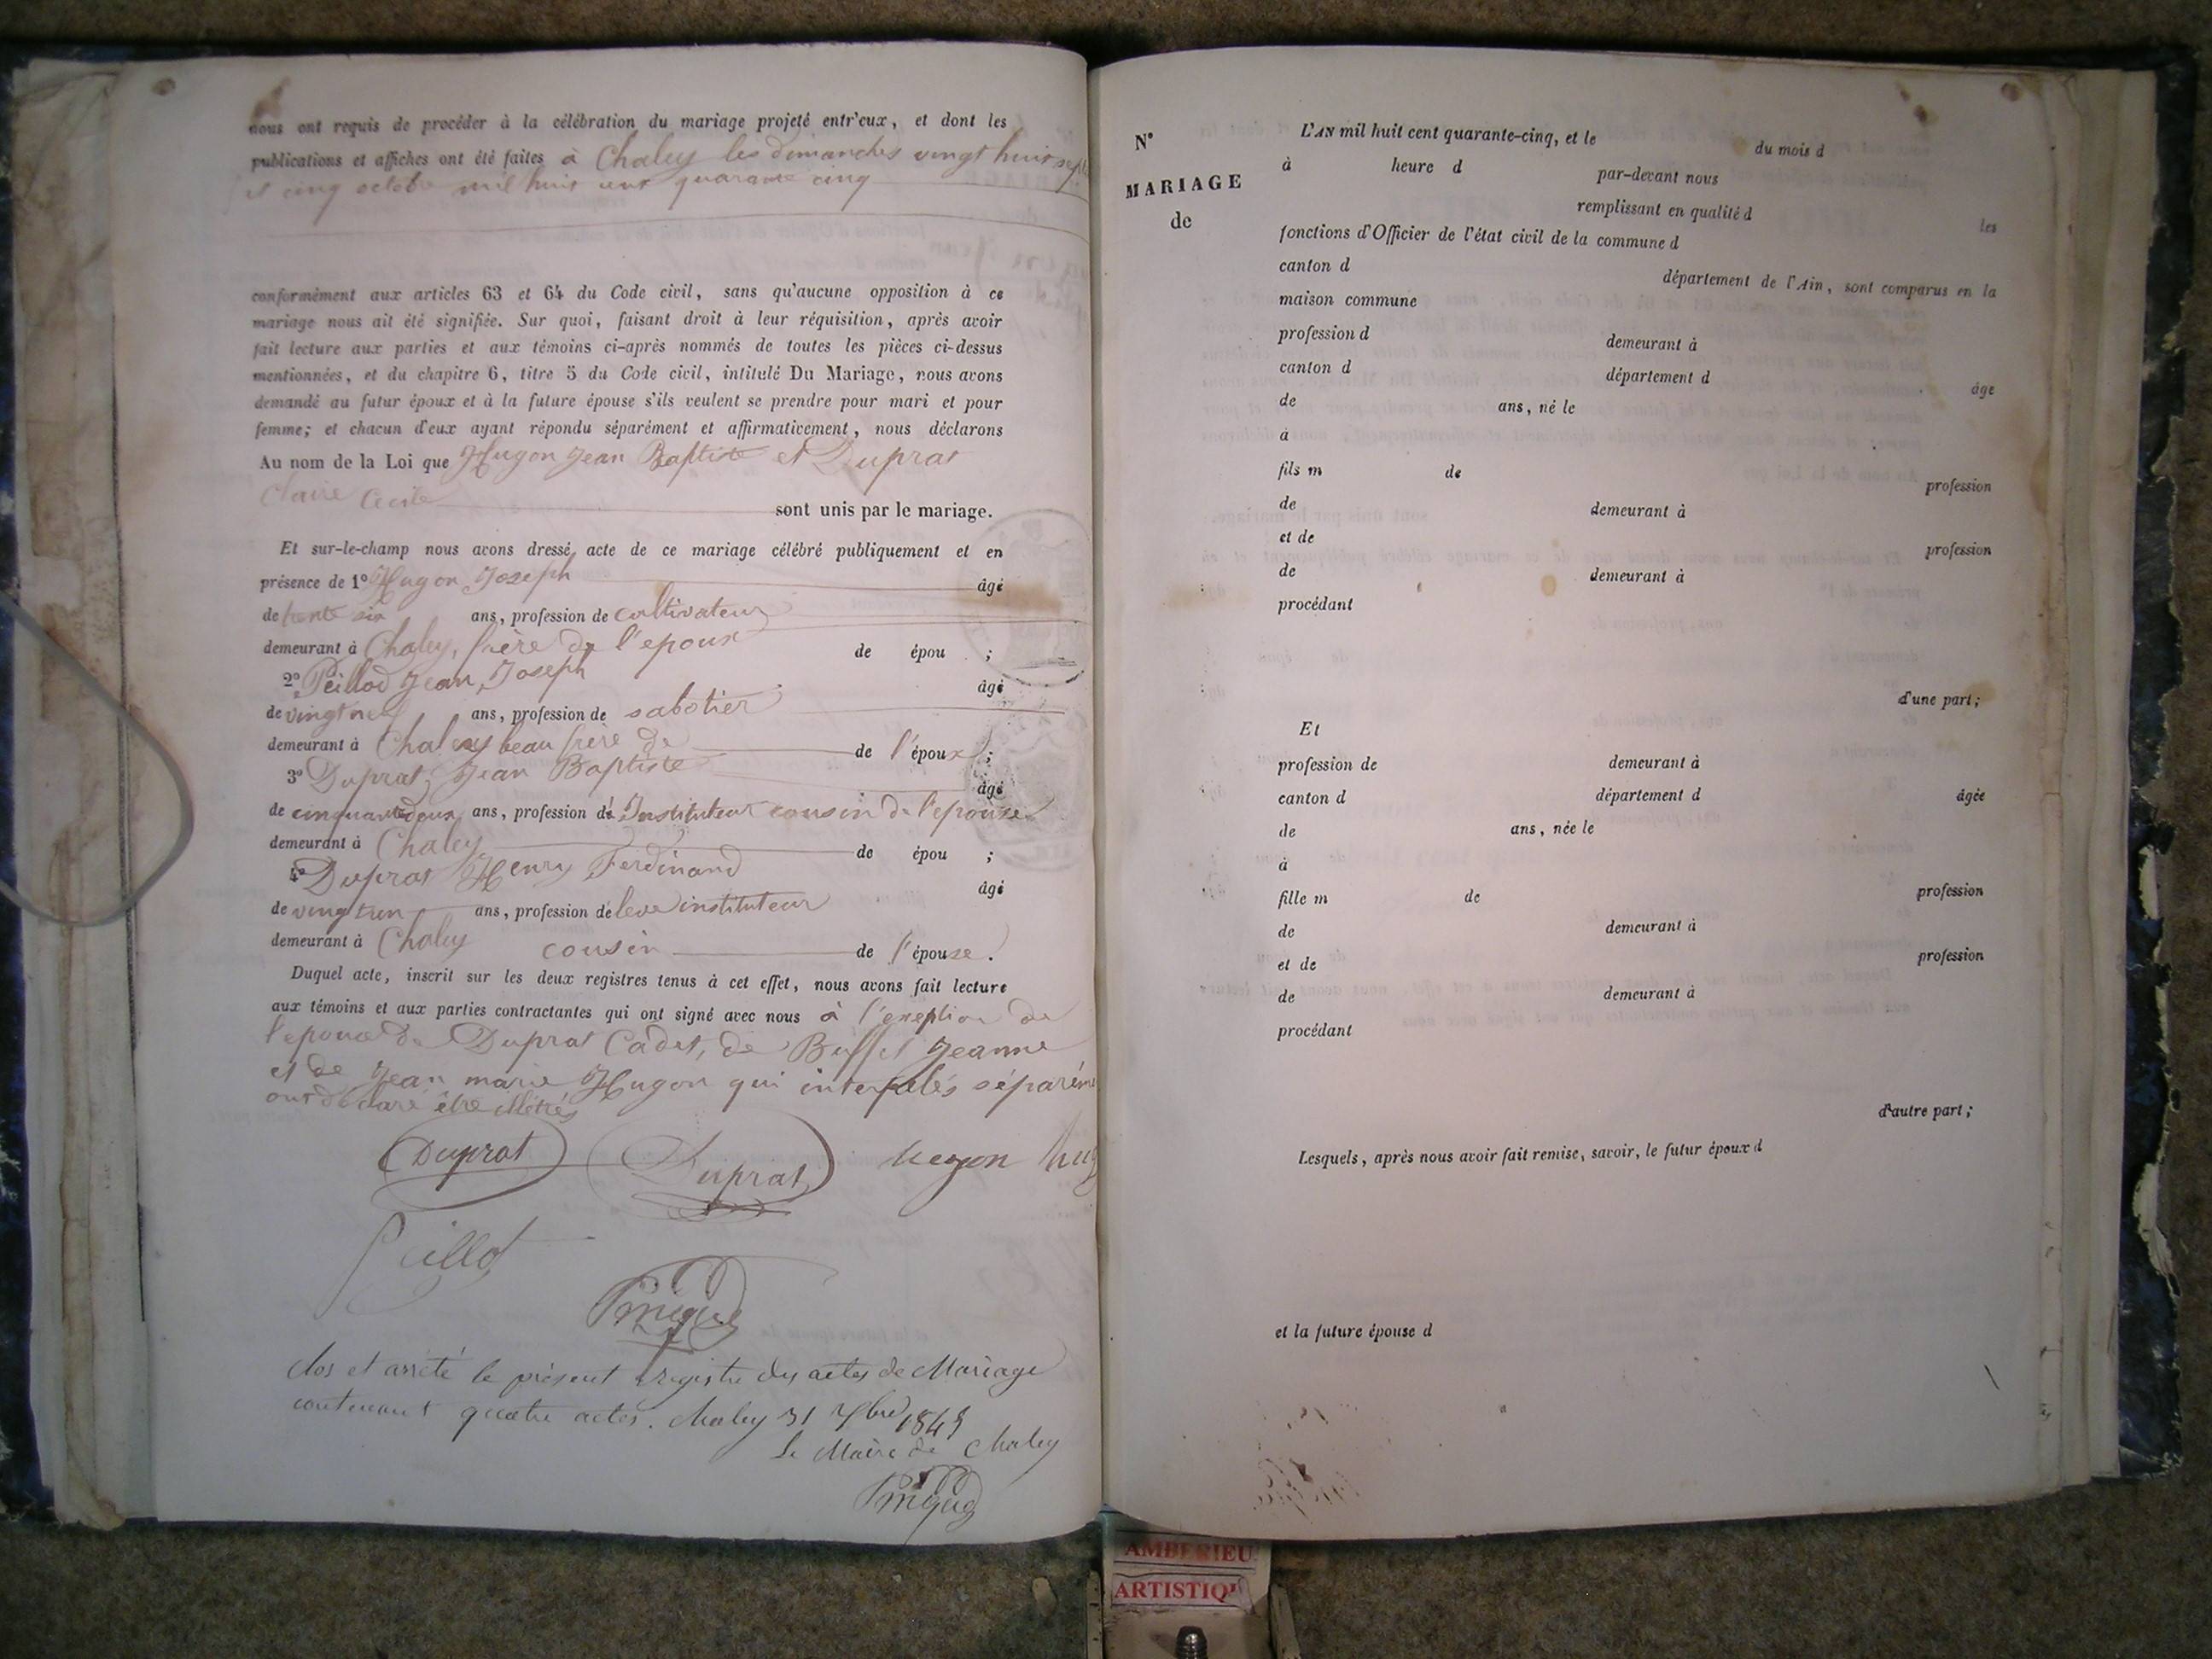 nous ont requis de procéder à la célébration du mariage projeté entr'eux, et dont les
publications et affiches ont été faites à Chaley les dimanches vingt huit sept
et cinq octobre mil huit cent quarante cinq
conformément aux articles 63 et 64 du Code civil, sans qu'aucune opposition à ce
mariage nous ait été signifiée. Sur quoi, faisant droit à leur réquisition, après avoir
fait lecture aux parties et aux témoins ci-après nommés de toutes les pièces ci-dessus
mentionnées, et du chapitre 6, titre 5 du Code civil, intitulé Du Mariage, nous avons
demandé au futur époux et à la future épouse s'ils veulent se prendre pour mari et pour
femme; et chacun d'eux ayant répondu séparément et affirmativement, nous déclarons
Au nom de la Loi que Hugon Jean Baptiste et Duprat
Claire Cecile
sont unis par le mariage.
Et sur-le-champ nous avons dressé acte de ce mariage célébré publiquement et en
présence de 1° Hugon Joseph âgé
de trente six ans, profession de cultivateur
demeurant à Chaley, frère de l'epoux de épou ;
2° Peillod Jean Joseph âgé
de vingt neuf ans, profession de sabotier
demeurant à Chaley beau frère de de l'époux ;
3° Duprat Jean Baptiste âgé
de cinquante deux ans, profession de Instituteur cousin de l'epouse
demeurant à Chaley de épou ;
4° Duprat Henry Ferdinand âgé
de vingt un ans, profession de leve instituteur
demeurant à Chaley cousin de l'épouse.
Duquel acte, inscrit sur les deux registres tenus à cet effet, nous avons fait lecture
aux témoins et aux parties contractantes qui ont signé avec nous à l'exeption de
l'epouse de Duprat Cadet, de Buffet Jeanne
et de Jean marie Hugon qui interpelés séparém
ont déclaré être illétrés
Duprat Duprat hugon hug
Peillod
clos et arrêté le présent registre des actes de Mariage
contenant quatre actes. Chaley 31 Xbre 1845
Le Maire de Chaley
N°
MARIAGE
de
L'AN mil huit cent quarante-cinq, et le du mois d
à heure d par-devant nous
remplissant en qualité d les
fonctions d'Officier de l'état civil de la commune d
canton d département de l'Ain, sont comparus en la
maison commune
profession d demeurant à
canton d département d âge
de ans, né le
à
fils m de profession
de demeurant à
et de profession
de demeurant à
procédant
d'une part;
Et
profession de demeurant à
canton d département d âgée
de ans, née le
à
fille m de profession
de demeurant à
et de profession
de demeurant à
procédant
d'autre part;
Lesquels, après nous avoir fait remise, savoir, le futur époux d
et la future épouse d
AMBERIEU
ARTISTIQ